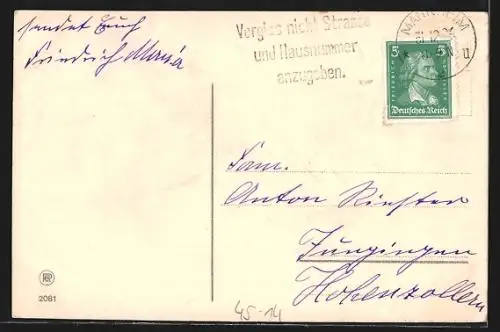 sendet Euch
Friedrich Mayer
Vergiss nicht Strasse
und Hausnummer
anzugeben.
MANNHEIM
5 5
Deutsches Reich
Fam.
Anton Riester
Jungingen
Hohenzollern
2081
45-14